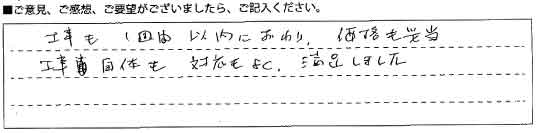 ■ご意見、ご感想、ご要望がございましたら、ご記入ください。
工事も 1週間 以内におわり、価格も妥当
工事自体も 対応もよく、満足しました